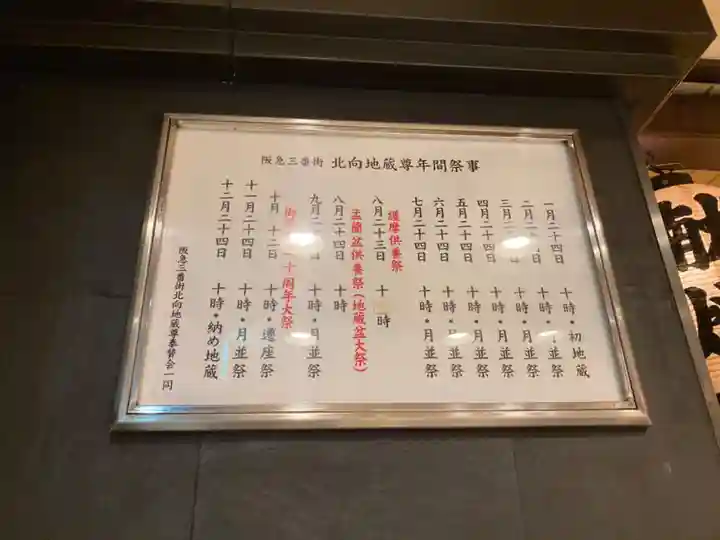 阪急三番街 北向地蔵尊年間祭事
一月二十四日 十時・初地蔵
二月二 日 十時・ 並祭
三月二 日 十時・月並祭
四月二十四日 十時・月並祭
五月二十四日 十時・月並祭
六月二十四日 十時・月並祭
七月二十四日 十時・月並祭
護摩供養祭
八月二十三日 十 時
盂蘭盆供養祭(地蔵盆大祭)
八月二十四日 十時
九月二 日 十時・月並祭
十周年大祭
十月 十二日 十時・遷座祭
十一月二十四日 十時・月並祭
十二月二十四日 十時・納め地蔵
阪急三番街北向地蔵尊奉賛会一同
献